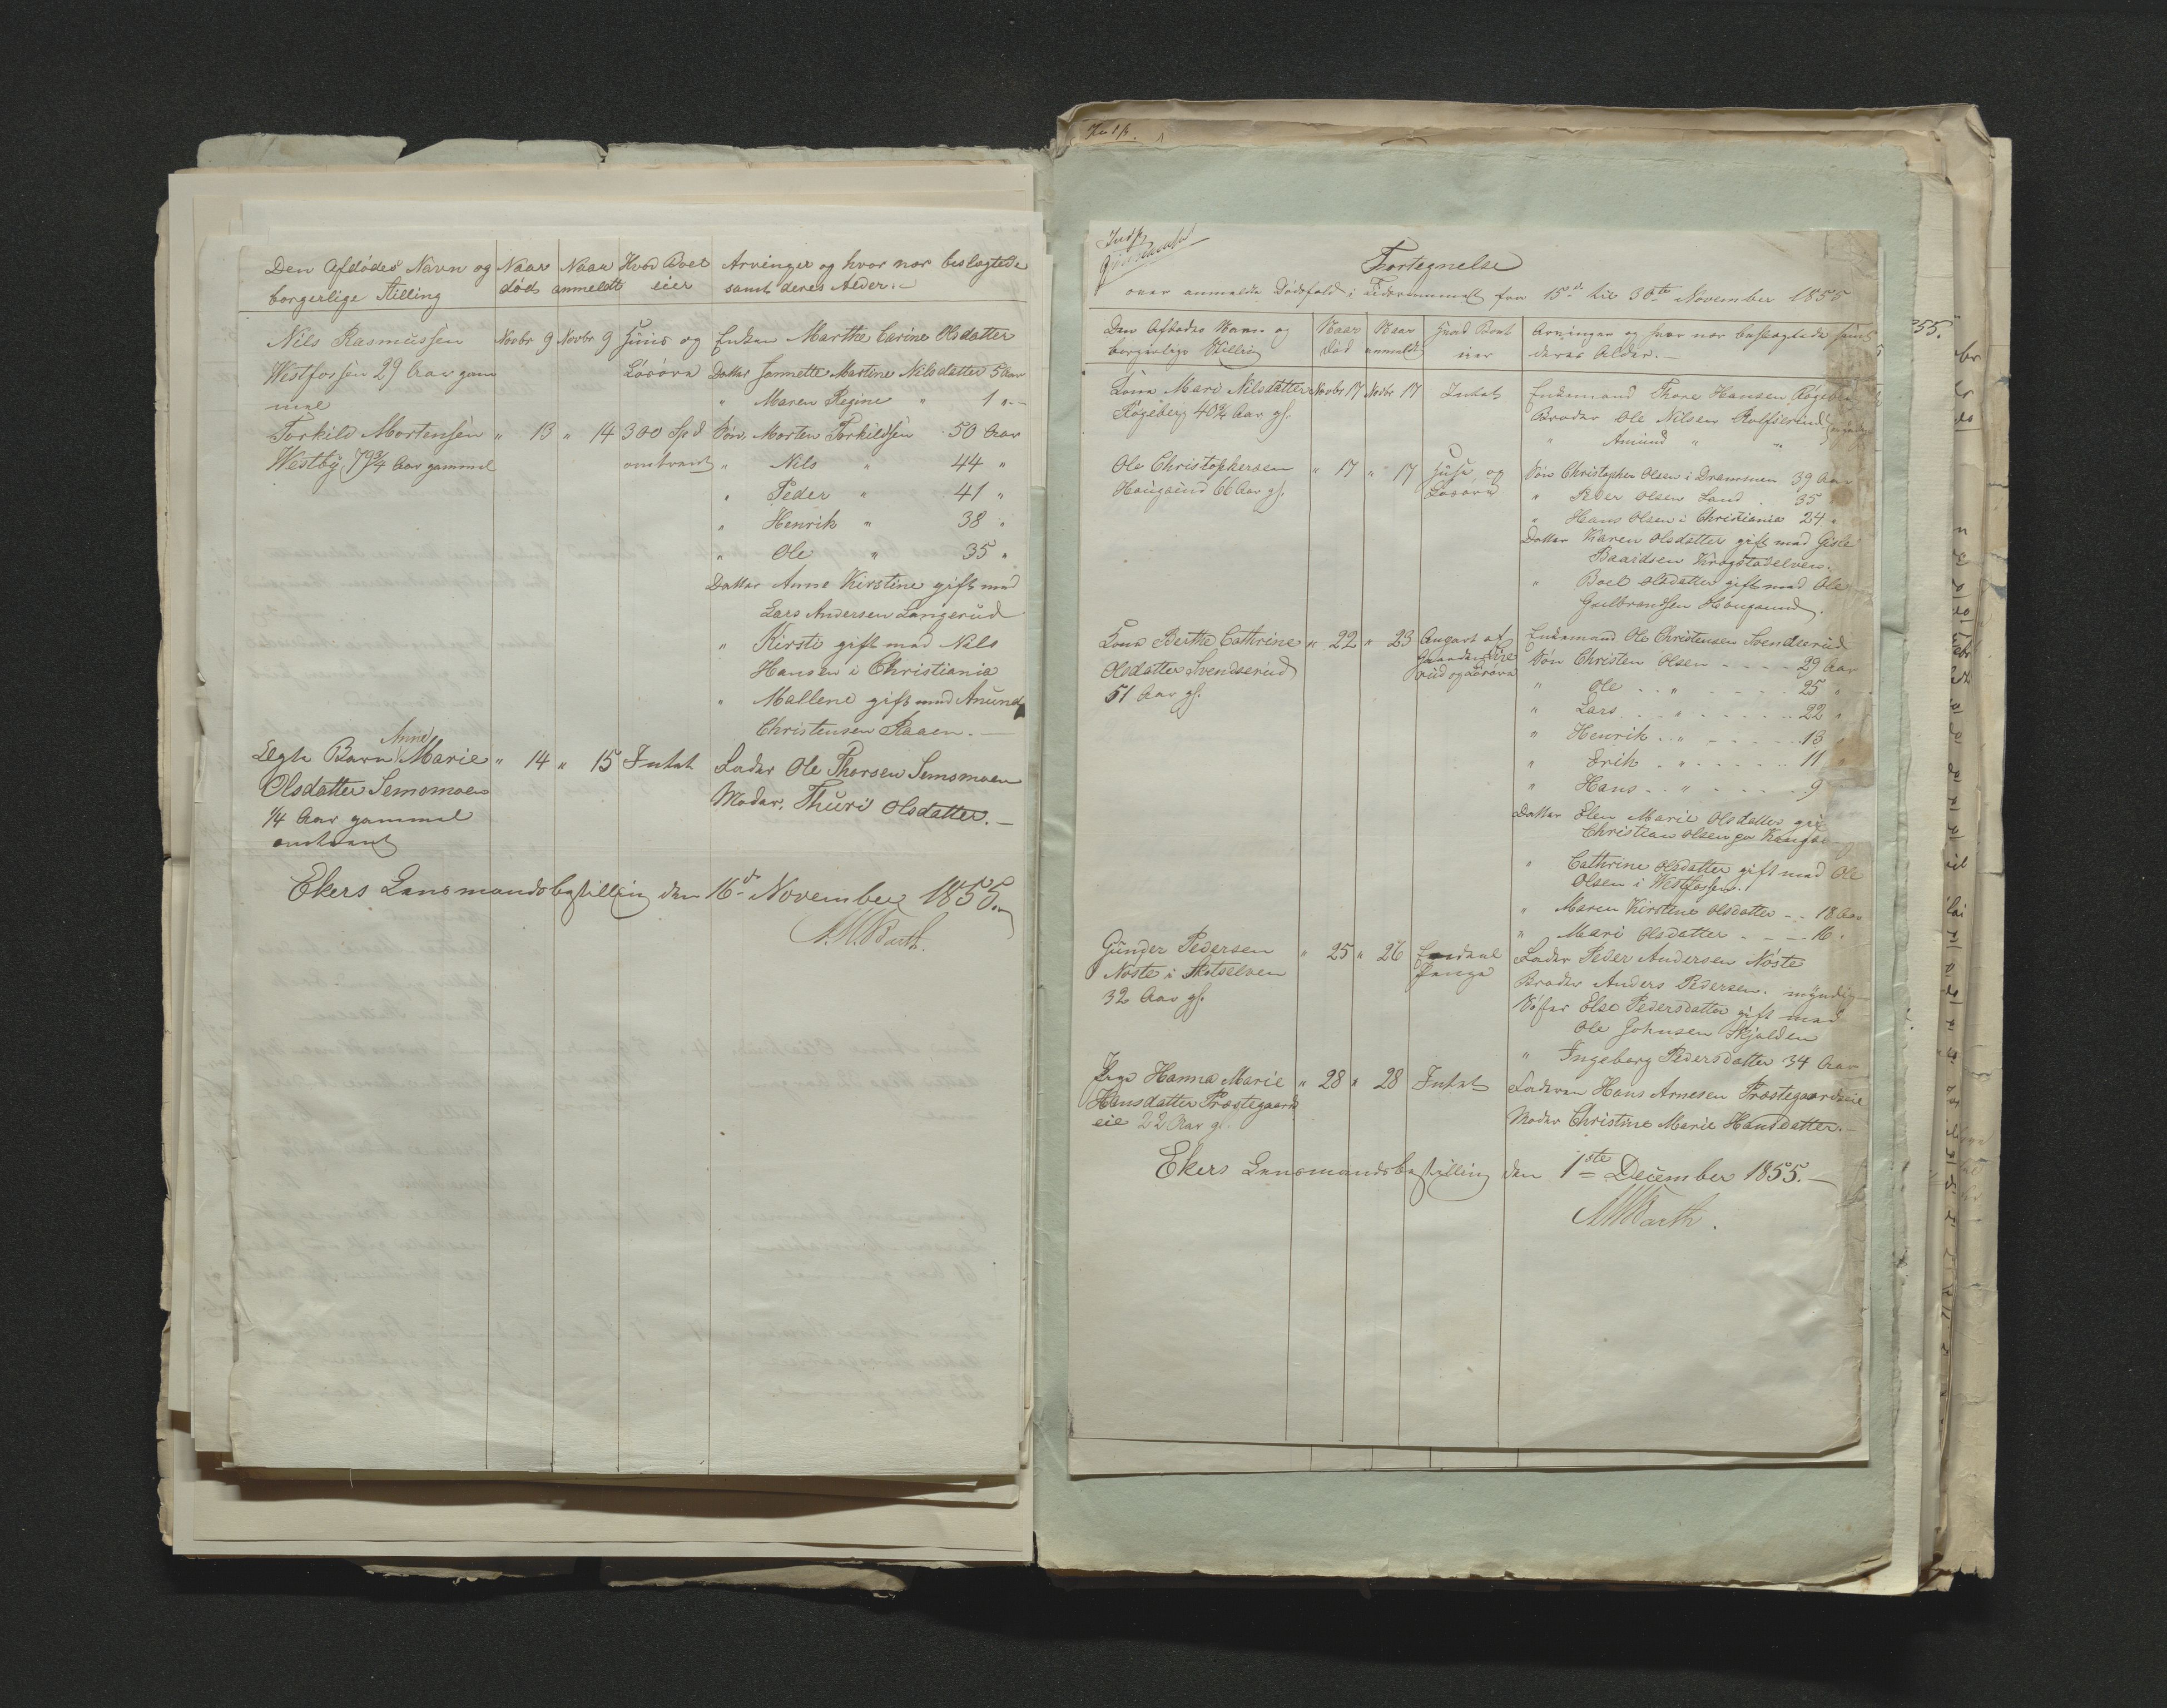 Den Afdødes Navn og borgerlige Stilling | Naar død | Naar anmeldt | Hvad Boet eier | Arvinger og hvor nær beslægtede samt deres Alder.-
Nils Rasmussen | Novbr 9 | Novbr 9 | Huus og | Enken Marthe Carine Olsdatter
Westfossen 29 Aar gam | Løsøre | Datter Jannette Martine Nilsdatter 5 Aar
mel | " Maren Regine " 1 "-
Torkild Mortensen | " 13 | " 14 | 300 Spd | Søn, Morten Torkildsen 50 Aar
Westby 79¾ Aar gammel | omtrent | " Nils " 44 "
" Peder " 41 "
" Henrik " 38 "
" Ole " 35 "
Datter Anne Kirstine gift med
Lars Andersen Langerud
" Kirsti gift med Nils
Hansen i Christiania
" Mallene gift med Anund
Christensen Raaen.-
Anne
Ægte Barn Marie | " 14 | " 15 | Intet | Fader Ole Thorsen Semsmoen
Olsdatter Semsmoen | Moder, Thuri Olsdatter.-
¼ Aar gammel
omtrent
Ekers Lensmandsbestilling den 16de November 1855.
Barth.
Fortegnelse
over anmeldte Dødsfald i Tidsrummet fra 15de til 30te November 1855
Den Afdødes Navn og borgerlige Stilling | Naar død | Naar anmeldt | Hvad Boet eier | Arvinger og hvor nær beslægtede samt deres Alder.-
Kone Mari Nilsdatter | Novbr 17 | Novbr 17 | Intet | Enkemand Thore Hansen
Røgeberg 40¾ Aar gl. | Broder Ole Nilsen Rolfserud
" Amund " "
Ole Christophersen | " 17 | " 17 | Huse og | Søn Christopher Olsen i Drammen 39 Aar
Hougsund 66 Aar gl. | Løsøre | " Peder Olsen Sand . 35
" Hans Olsen i Christiania 24 "
Datter Karen Olsdatter gift med Gisle
Baardsen Krogstadelven.
" Boel Olsdatter gift med Ole
Gulbrandsen Hougsund.
Kone Berthe Cathrine | " 22 | " 23 | Enkemand Ole Christensen Svendserud
Olsdatter Svendserud | Søn Christen Olsen - - - - 29 Aar
51 Aar gl. | rud og Løsøre | " Ole - - " - - - - 25 "
" Lars - - " - - - - 22 "
" Henrik - - " - - - - 13
" Erik - - " - - - - 11
" Hans - - " - - - - 9
Datter Elen Marie Olsdatter
Christian Olsen
" Cathrine Olsdatter gift med Ole
Olsen i Westfossen.
" Maren Kirstine Olsdatter - - 18 Aar
" Mari Olsdatter - - - 16 .
Gunder Pedersen | " 25 | " 26 | Fader Peder Andersen Noste
Noste i Skotselven | Penge | Broder Anders Pedersen. myndig
32 Aar gl. | Søster Else Pedersdatter gift med
Ole Johnsen Skjolden
" Ingeborg Pedersdatter 34 Aar
Pige Hanna Marie | " 28 | " 28 | Intet | Faderen Hans Arnesen Præstegaardseie
Hansdatter Præstegaards | Moder Christine Marie Hansdatter.-
eie 22 Aar gl.
Ekers Lensmandsbestilling den 1ste December 1855.-
Barth.